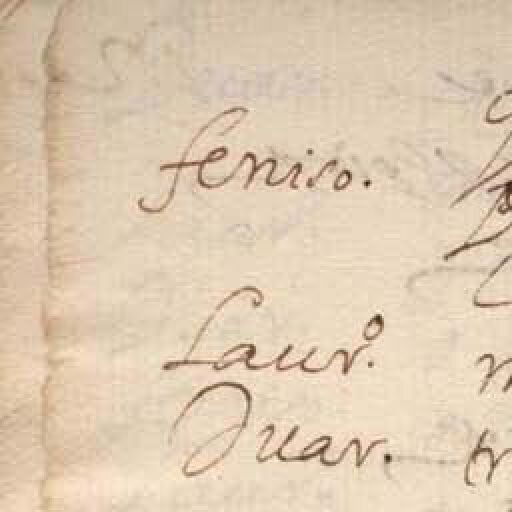 feniso.
Laur.º
Duar.